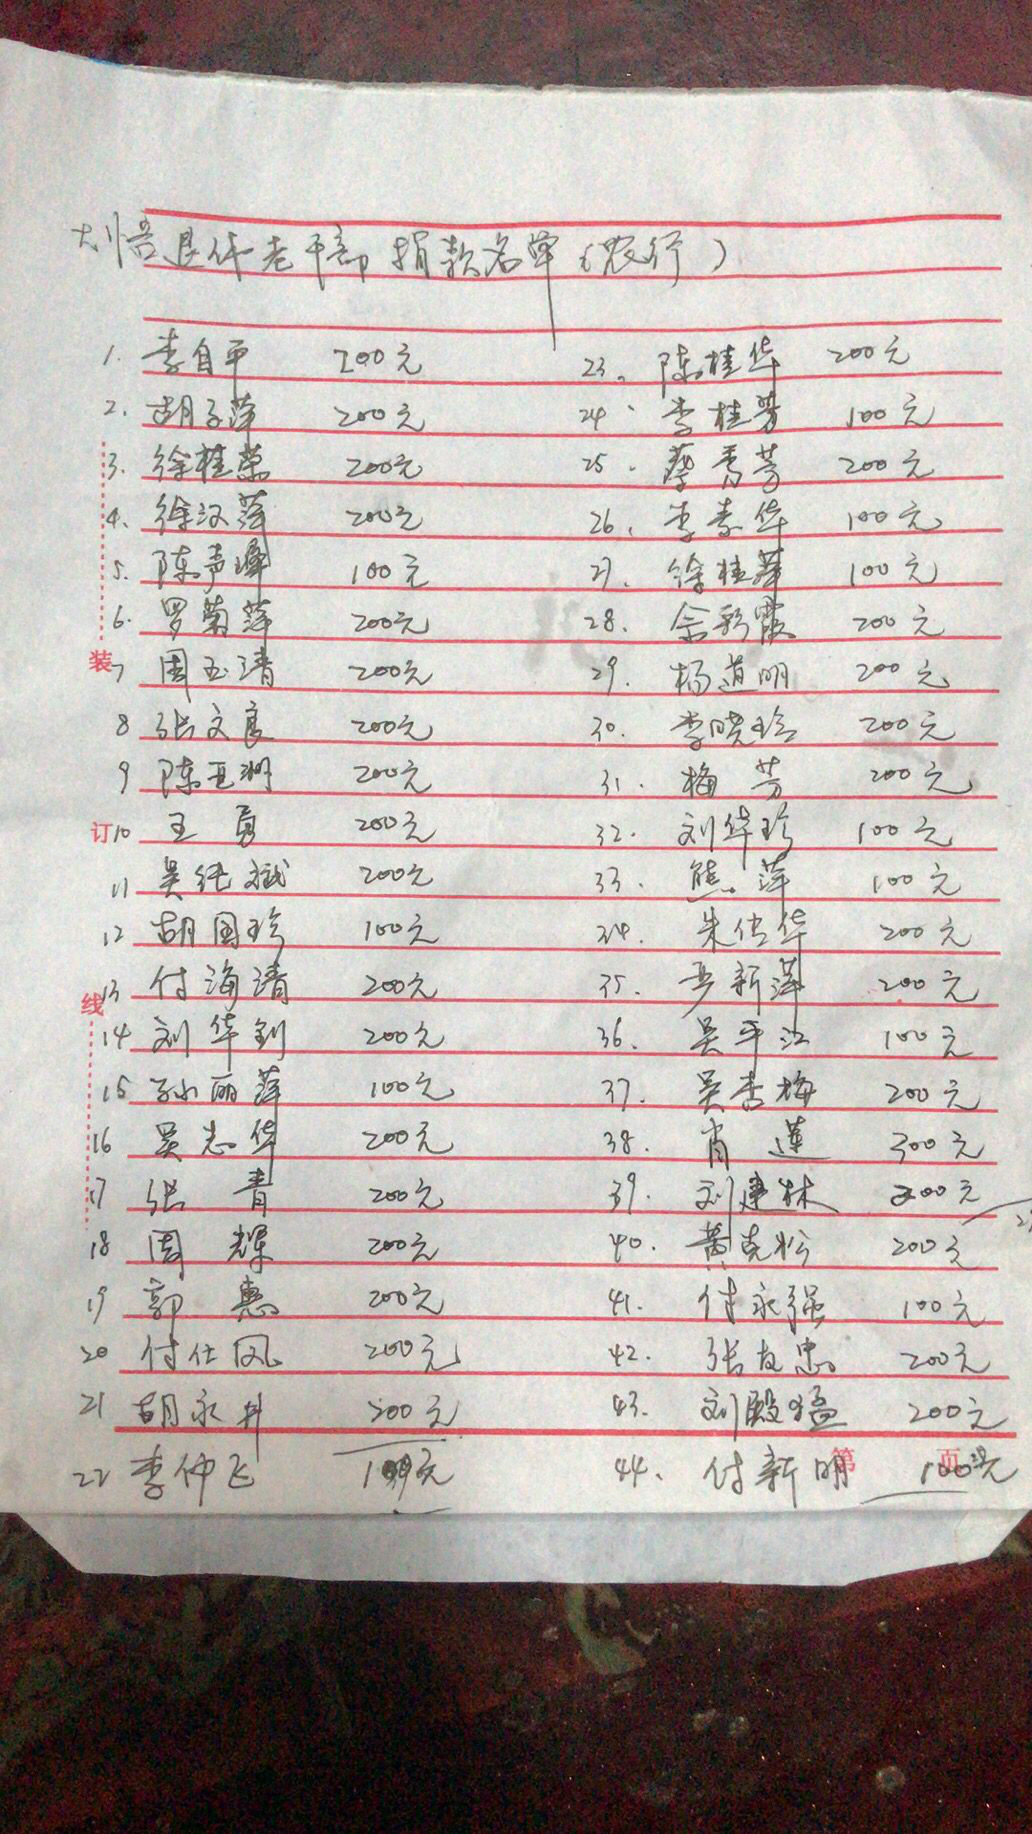 大悟退休老干部捐款名单(农行)
1. 李自平 200元 23. 陈桂华 200元
2. 胡子萍 200元 24. 李桂芳 100元
3. 徐桂荣 200元 25. 蔡秀芳 200元
4. 徐汉萍 200元 26. 李素华 100元
5. 陈声 100元 27. 徐桂萍 100元
6. 罗菊萍 200元 28. 余彩霞 200元
装 7 周玉清 200元 29. 杨道明 200元
8 张文良 200元 30. 李晓玲 200元
9 陈亚洲 200元 31. 梅芳 200元
订 10 王勇 200元 32. 刘华珍 100元
11 吴纯斌 200元 33. 熊萍 100元
12 胡国珍 100元 34. 朱传华 200元
线 13 付海清 200元 35. 严新萍 200元
14 刘华钊 200元 36. 吴平江 100元
15 孙丽萍 100元 37. 吴杏梅 200元
16 吴志华 200元 38. 肖莲 300元
17 张青 200元 39. 刘建林 200元
18 周辉 200元 40. 黄克松 200元
19 郭惠 200元 41. 付永强 100元
20 付仕凤 200元 42. 张友忠 200元
21 胡永井 200元 43. 刘殿猛 200元
22 李仲飞 100元 44. 付新明 100元
第 页